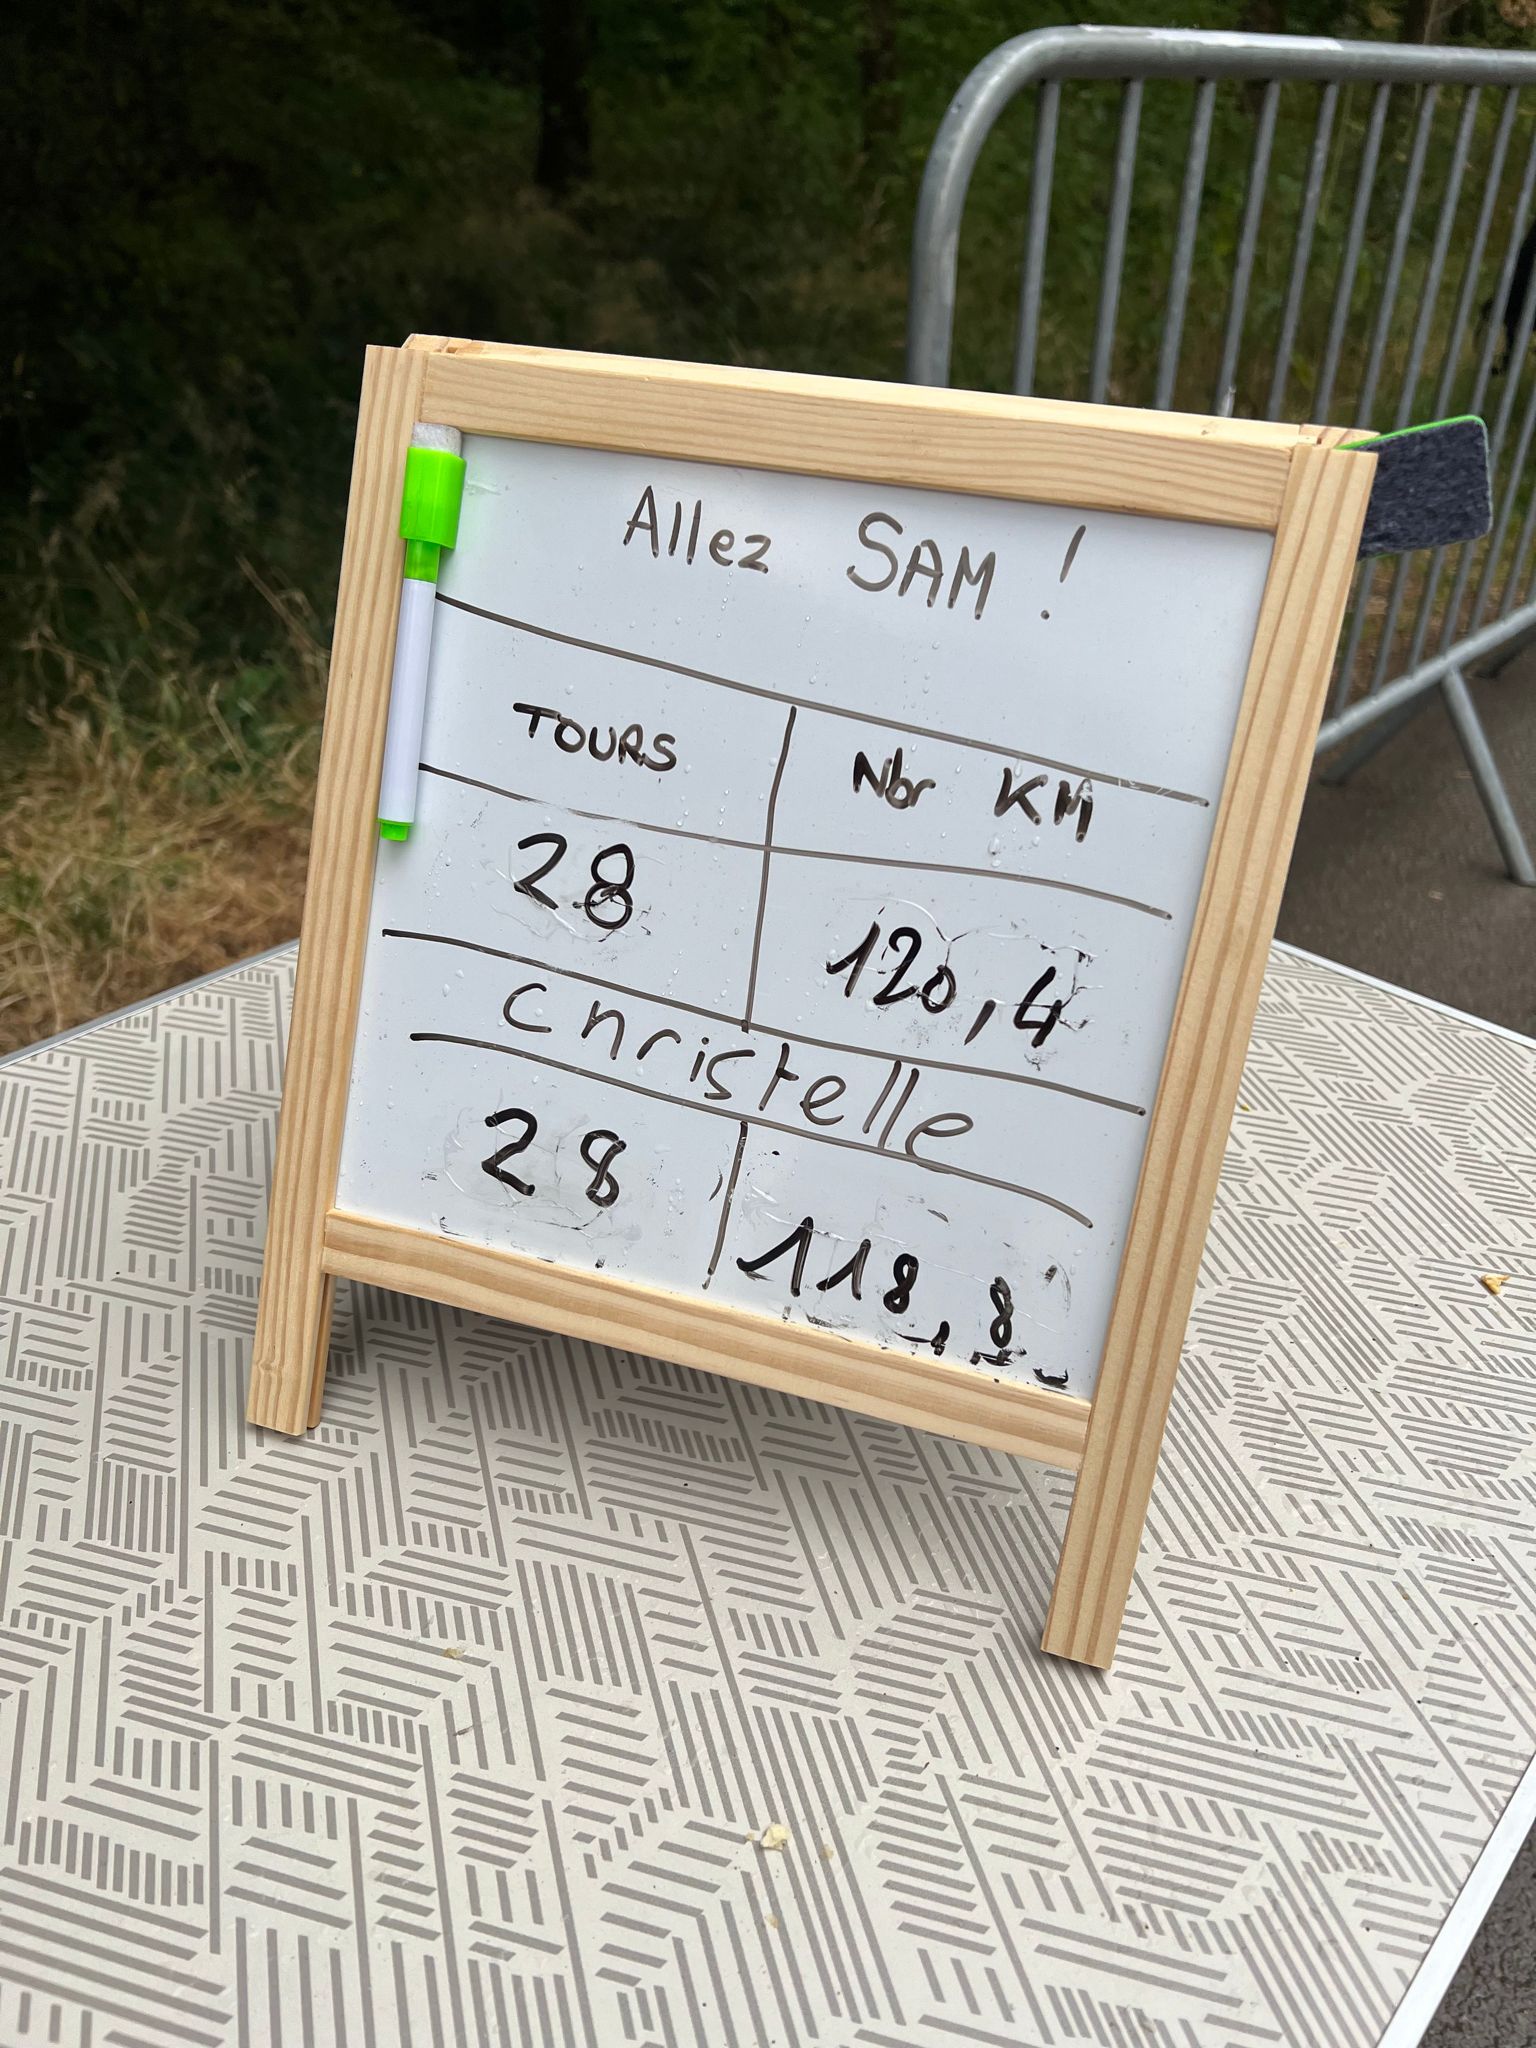 Allez SAM !
TOURS Nbr KM
28 120,4
Christelle
28 118,8